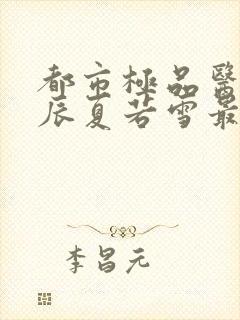 都市極品醫
辰夏若雪最
李昌元